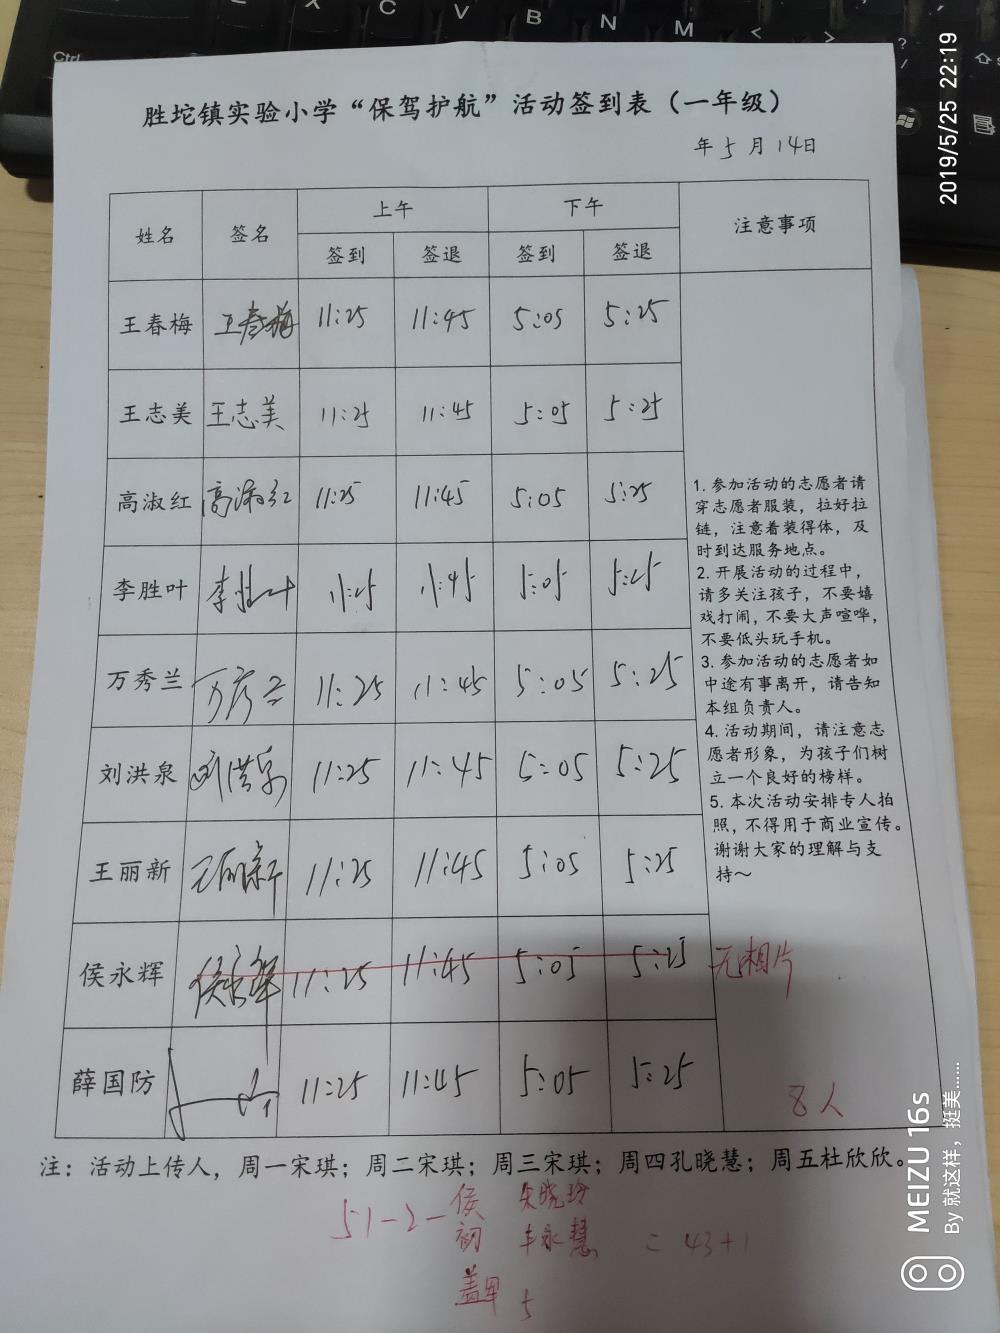 Ctrl X C V B N M < > ?
胜坨镇实验小学“保驾护航”活动签到表（一年级）
年5月14日
姓名 签名 上午 下午 注意事项
签到 签退 签到 签退
王春梅 王春梅 11:25 11:45 5:05 5:25
王志美 王志美 11:25 11:45 5:05 5:25
高淑红 高淑红 11:25 11:45 5:05 5:25
李胜叶 李胜叶 11:25 11:45 5:05 5:25
万秀兰 万秀兰 11:25 11:45 5:05 5:25
刘洪泉 刘洪泉 11:25 11:45 5:05 5:25
王丽新 王丽新 11:25 11:45 5:05 5:25
侯永辉 侯永辉 11:25 11:45 5:05 5:25 无相片
薛国防 11:25 11:45 5:05 5:25
8人
1. 参加活动的志愿者请
穿志愿者服装，拉好拉
链，注意着装得体，及
时到达服务地点。
2. 开展活动的过程中，
请多关注孩子，不要嬉
戏打闹，不要大声喧哗，
不要低头玩手机。
3. 参加活动的志愿者如
中途有事离开，请告知
本组负责人。
4. 活动期间，请注意志
愿者形象，为孩子们树
立一个良好的榜样。
5. 本次活动安排专人拍
照，不得用于商业宣传。
谢谢大家的理解与支
持～
注：活动上传人，周一宋琪；周二宋琪；周三宋琪；周四孔晓慧；周五杜欣欣。
51-2-侯 朱晓玲
永慧 = 43+1
5
2019/5/25 22:19
MEIZU 16s
By 就这样，挺美......